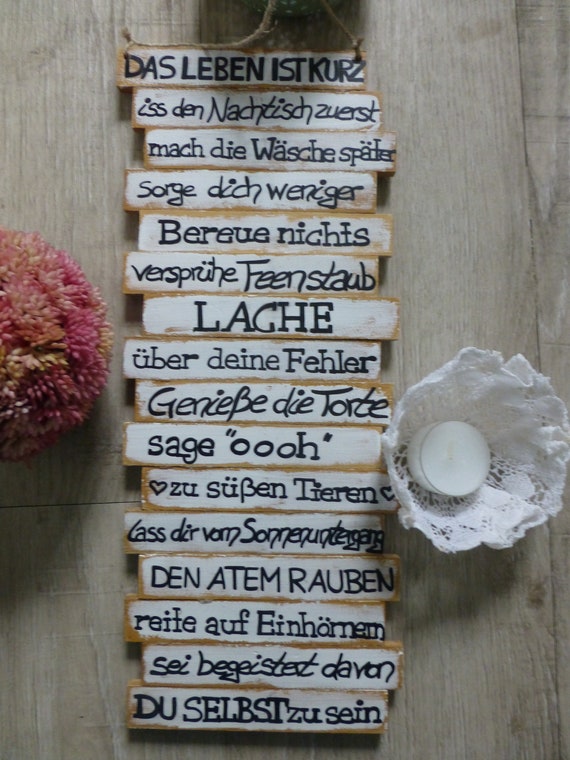 DAS LEBEN IST KURZ
iss den Nachtisch zuerst
mach die Wäsche später
sorge dich weniger
Bereue nichts
versprühe Feenstaub
LACHE
über deine Fehler
Genieße die Torte
sage "oooh"
♡zu süßen Tieren♡
Lass dir vom Sonnenuntergang
DEN ATEM RAUBEN
reite auf Einhörnern
sei begeistert davon
DU SELBST zu sein